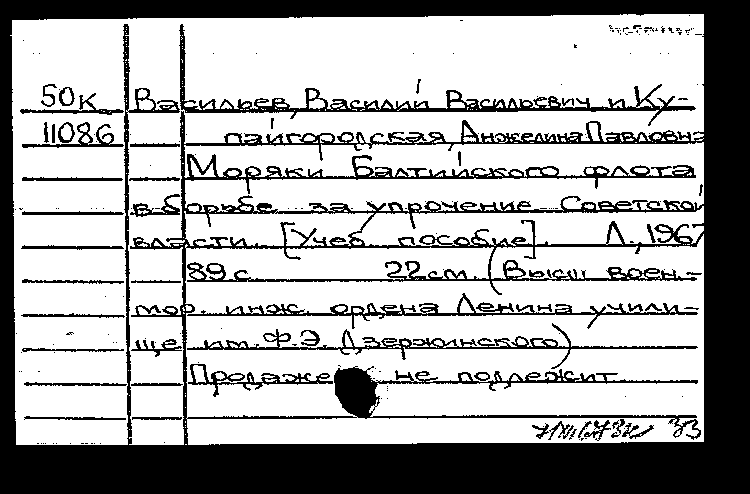 50к Васильев, Василий Васильевич и Ку-
11086 пайгородская, Анжелина Павловна
Моряки Балтийского флота
в борьбе за упрочение Советской
власти. [Учеб. пособие]. Л., 1967
89 с. 22 см. (Высш. воен.-
мор. инж. ордена Ленина учили-
ще им. Ф.Э. Дзержинского)
Продаже не подлежит
33